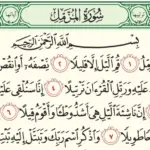 سُورَةُ الْمُزَّمِّلِ
بِسْمِ اللَّهِ الرَّحْمَٰنِ الرَّحِيمِ
قُمِ اللَّيْلَ إِلَّا قَلِيلًا ۝٢ نِصْفَهُ أَوِ انْقُصْ
وَرَتِّلِ الْقُرْآنَ تَرْتِيلًا ۝٤ إِنَّا سَنُلْقِي عَلَيْكَ
إِنَّ نَاشِئَةَ اللَّيْلِ هِيَ أَشَدُّ وَطْئًا وَأَقْوَمُ قِيلًا ۝٦
طَوِيلًا ۝٧ وَاذْكُرِ اسْمَ رَبِّكَ وَتَبَتَّلْ إِلَيْهِ